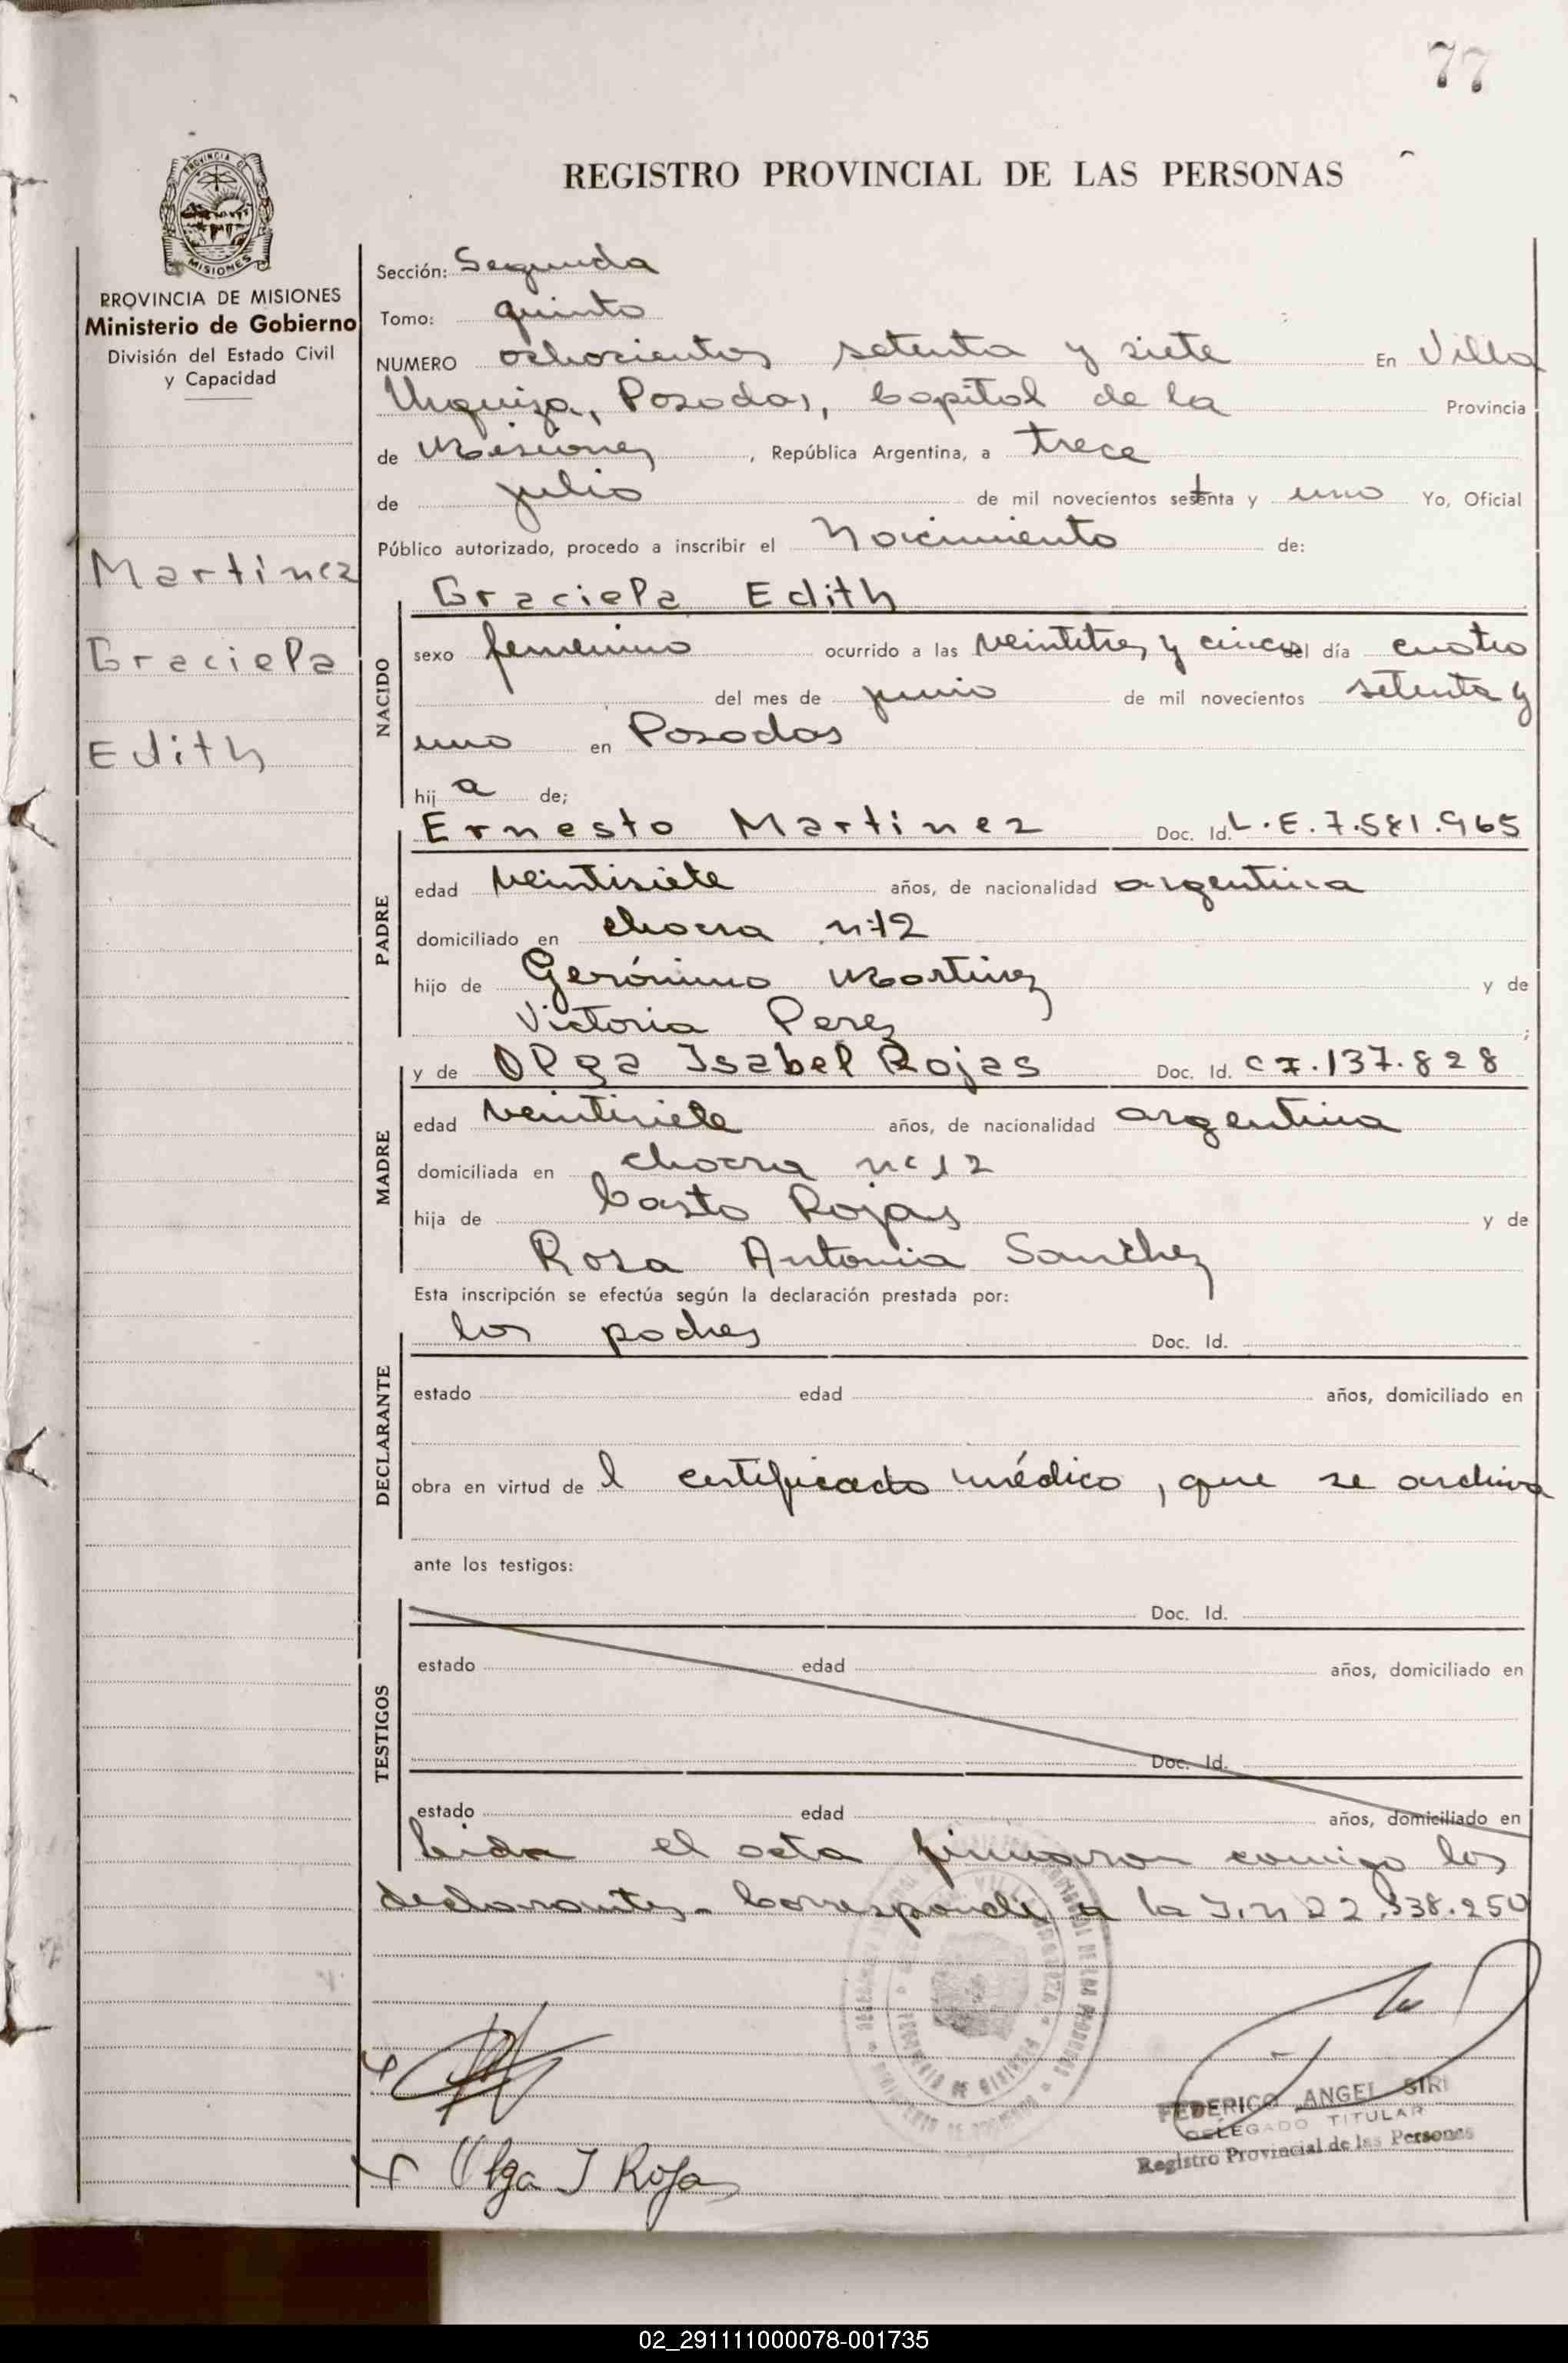 77
REGISTRO PROVINCIAL DE LAS PERSONAS
PROVINCIA DE MISIONES
Ministerio de Gobierno
División del Estado Civil
y Capacidad
Martinez
Graciela
Edith
Sección: Segunda
Tomo: quinto
NUMERO ochocientos setenta y siete En Villa
Urquiza, Posadas, Capital de la Provincia
de Misiones, República Argentina, a trece
de julio de mil novecientos setenta y uno Yo, Oficial
Público autorizado, procedo a inscribir el Nacimiento de:
NACIDO
Graciela Edith
sexo femenino ocurrido a las veintitres y cinco del día cuatro
del mes de junio de mil novecientos setenta y
uno en Posadas
hija de;
PADRE
Ernesto Martinez Doc. Id. L.E. 7.581.965
edad veintisiete años, de nacionalidad argentina
domiciliado en chacra
hijo de Gerónimo Martinez y de
Victoria Perez;
MADRE
y de Olga Isabel Rojas Doc. Id. 137.828
edad veintisiete años, de nacionalidad argentina
domiciliada en chacra 12
hija de Casto Rojas y de
Rosa Antonia Sanchez
Esta inscripción se efectúa según la declaración prestada por:
DECLARANTE
los padres Doc. Id.
estado edad años, domiciliado en
obra en virtud del certificado médico, que se archiva
ante los testigos:
TESTIGOS
Doc. Id.
estado edad años, domiciliado en
Doc. Id.
estado edad años, domiciliado en
Leida el acta firmaron conmigo los
declarantes. Corresponde a la 22.338.250
FEDERICO ANGEL SIRI
DELEGADO TITULAR
Registro Provincial de las Personas
Olga I Rojas
02_291111000078-001735